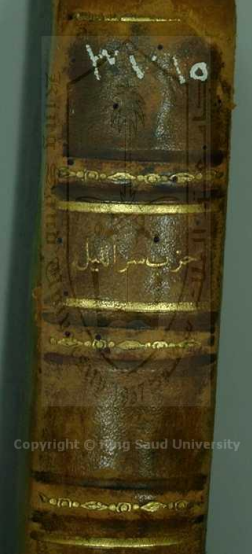 ٣٧١٥
حزب سر الليل
Copyright © King Saud University